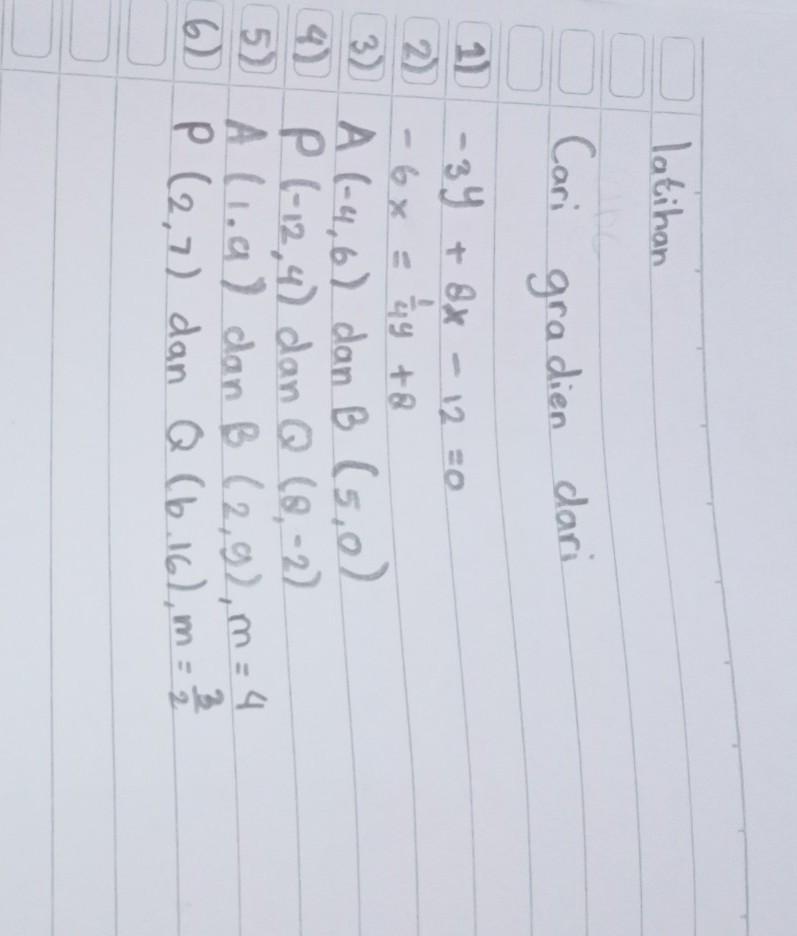 latihan
Cari gradien dari
1) -3y + 8x - 12 = 0
2) - 6x = 1/4y + 8
3) A (-4,6) dan B (5,0)
4) P (-12,4) dan Q (8,-2)
5) A (1.a) dan B (2,9), m = 4
6) P (2,7) dan Q (b.16), m = 3/2